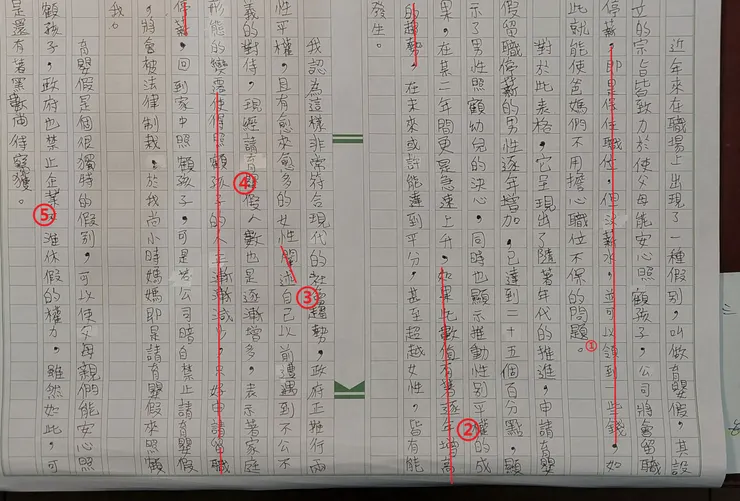 近年來在職場上出現了一種假別，叫做育嬰假，其設
立的宗旨皆致力於使父母能安心照顧孩子，公司將會留職
停薪，即是保住職位，但沒薪水，並可以領到一些錢，如
此就能使爸媽們不用擔心職位不保的問題。
①
對於此表格，它呈現出了隨著年代的推進，申請育嬰
假留職停薪的男性逐年增加，已達到二十五個百分點，顯
示了男性照顧幼兒的決心，同時也顯示推動性別平權的成
果，在某一年間更是急速上升，如果此數值有著逐年增高
②
的趨勢，在未來或許能達到平分，甚至超越女性，皆有能
發生。
我認為這樣非常符合現代的社會趨勢，政府正推行兩
③
性平權，且有愈來愈多的女性闡述自己以前遭遇到不公不
義的對待，現經請育嬰假人數也是逐漸增多，表示著家庭
④
形態的變遷使得照顧孩子的人正漸漸減少，只好申請留職
停薪，回到家中照顧孩子，可是若公司暗自禁止請育嬰假
，將會被法律制裁，於我尚小時媽媽即是請育嬰假來照顧
我。
育嬰假是個很獨特的假別，可以使父母親們能安心照
顧孩子，政府也禁止企業不准休假的權力，雖然如此，可
⑤
是還有著黑數尚待窺獲。